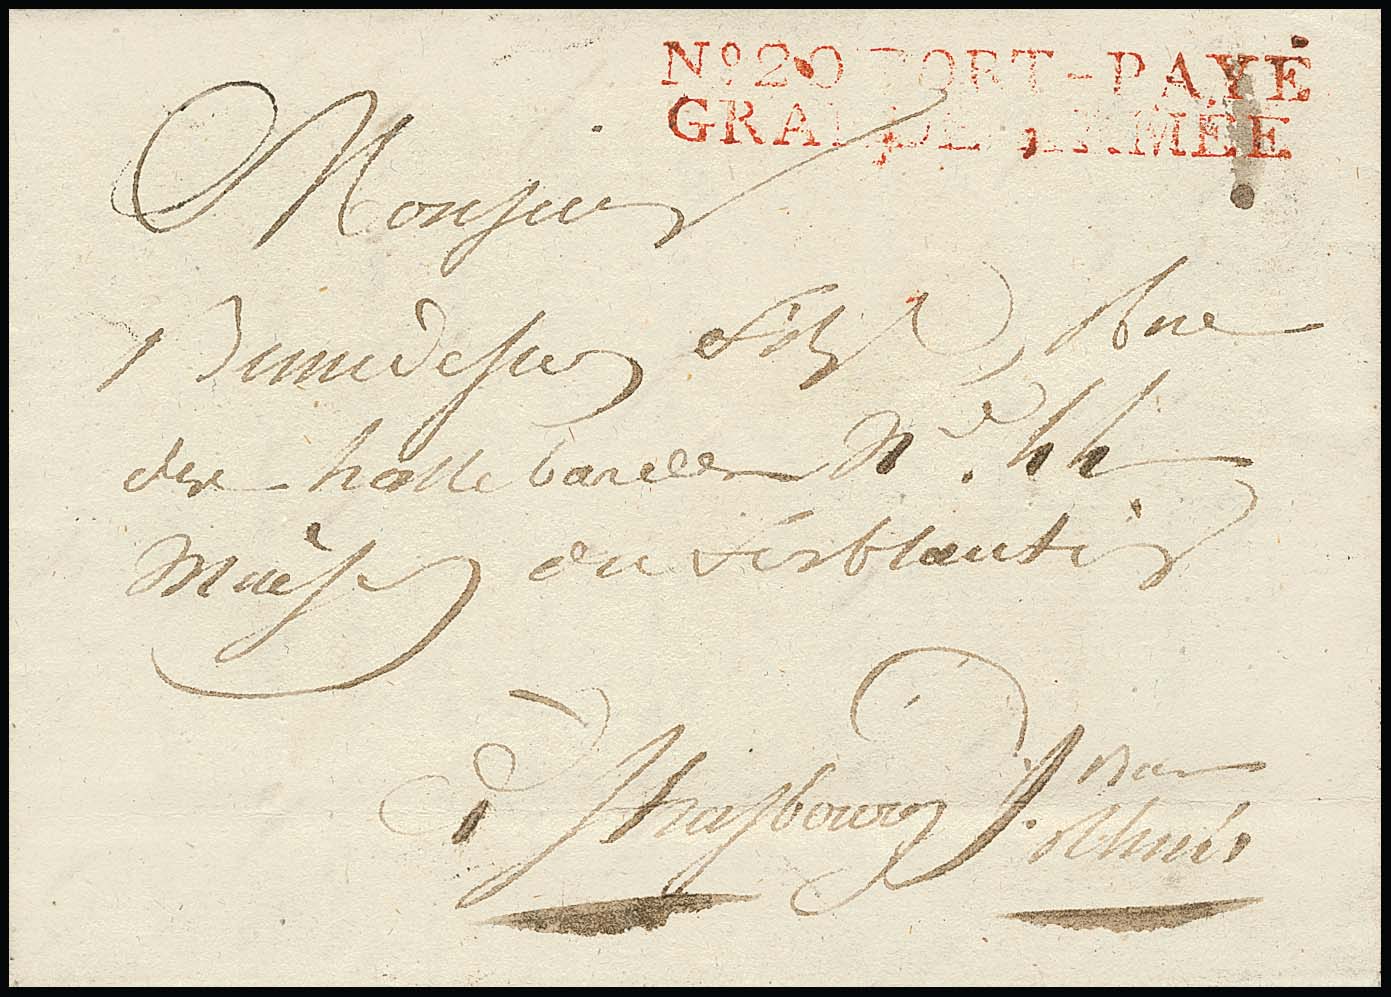 No 20 PORT-PAYÉ
GRANDE ARMÉE
Monsieur
fils, Rue
des hallebardes No. 44
Maison du ferblantier
à Strasbourg Bas
Rhin